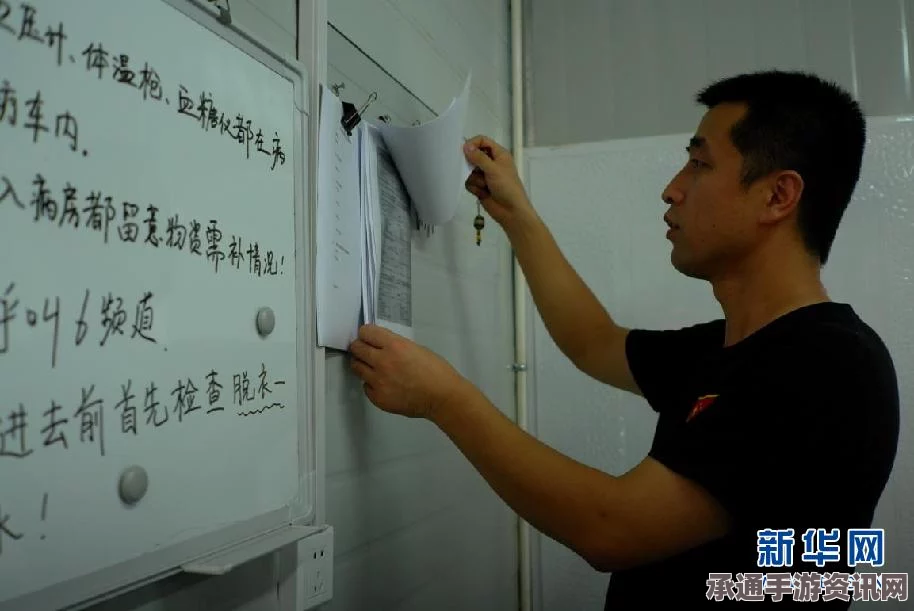 压计、体温枪、血糖仪都在病
房车内.
入病房都留意物资需补情况!
呼叫6频道.
进去前首先检查脱衣一
水!
新华网
承通手游资讯网